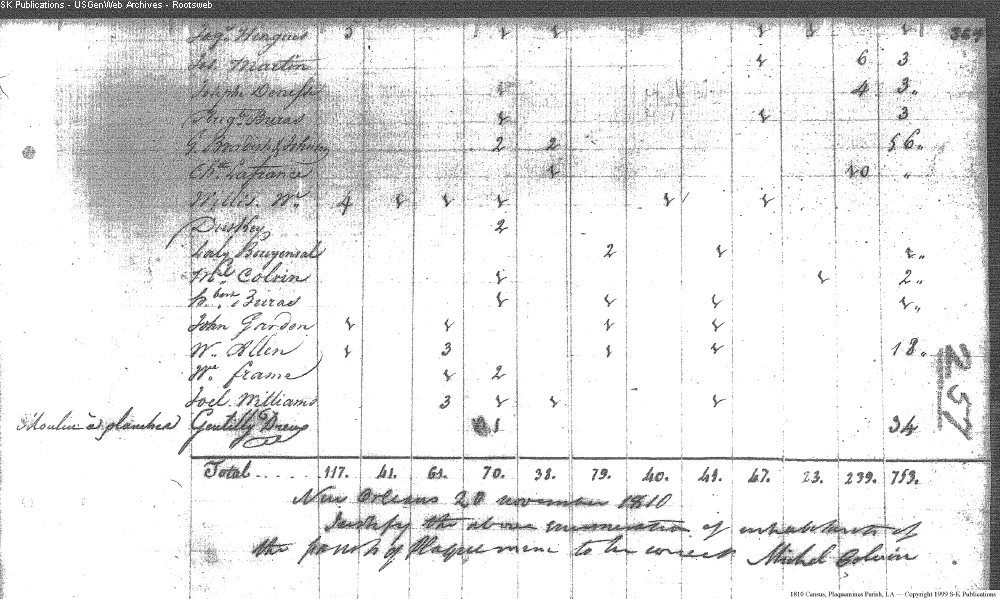 SK Publications - USGenWeb Archives - Rootsweb
Augt. Hingues 5 1 1 1 1 1 367
Jas. Martin 1 6 3
Joseph 1 4 3"
Augt. Buras 1 1 3
G. Bradish & Johnson 2 2 56"
Chs. Lafrance 1 10 "
Willis, Wm. 4 1 1 1 1 1
2
2 1 1"
Ml. Colvin 1 1 2"
Buras 1 1 1 1"
John Gordon 1 1 1 1
Wm. Allen 1 3 1 1 18"
Wm. frame 1 2
Joel Williams 3 1 1 1
257
Moulin à planches Gentilly Dreux 1 34
Total..... 117. 41. 61. 70. 38. 79. 40. 48. 47. 23. 239. 753.
New Orleans 20 november 1810
I certify the above enumeration of inhabitants of
the parish of Plaquemine to be correct Michel Colvin
1810 Census, Plaquemines Parish, LA — Copyright 1999 S-K Publications